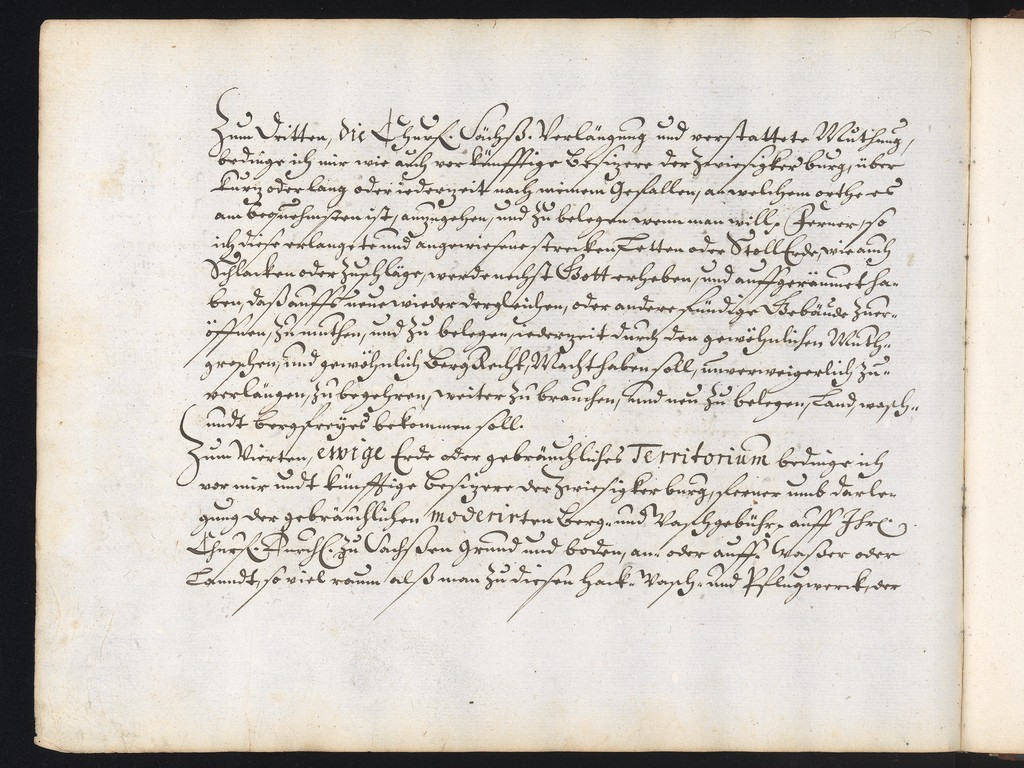 Zum Dritten, die Churf. Sächß. Verlängung und verstattete Muthung,
bedinge ich mir wie auch vor künfftige Besizere der Zwiesigker burg, über
kurz oder lang oder iederzeit nach meinem Gefallen, an welchem orthe es
am bequehmsten ist, anzugehen, und zu belegen wenn man will. Ferner, so
ich diese erlangete und angewiesene strecken Letten oder Stoll Erde, wie auch
Schlacken oder Zuschläge, werde nechst Gott erheben, und auffgeräumet ha-
ben, daß auffs neue wieder dergleichen, oder andere fündige Gebäude zuer-
öffnen, zu muthen, und zu belegen, iederzeit durch den gewöhnlichen Muth-
groschen, und gewöhnlich Berg Recht, Macht haben soll, unverweigerlich zu-
verlängen, zu begehren, weiter zu brauchen, und neu zu belegen, Land, wasch-
undt bergfreyes bekommen soll.
Zum Vierten, ewige Erde oder gebräuchliches Territorium bedinge ich
vor mir undt künfftige besizere der Zwiesigker burg, ferner umb darle-
gung der gebräuchlichen moderirten Berg- und Waschgebühr, auff Ihrl.
Churf. Durchl. zu Sachßen grund und boden, an- oder auffs Waßer oder
Lanndt, so viel raum alß man zu diesen Hack- Wasch- und Pflugwerck, der